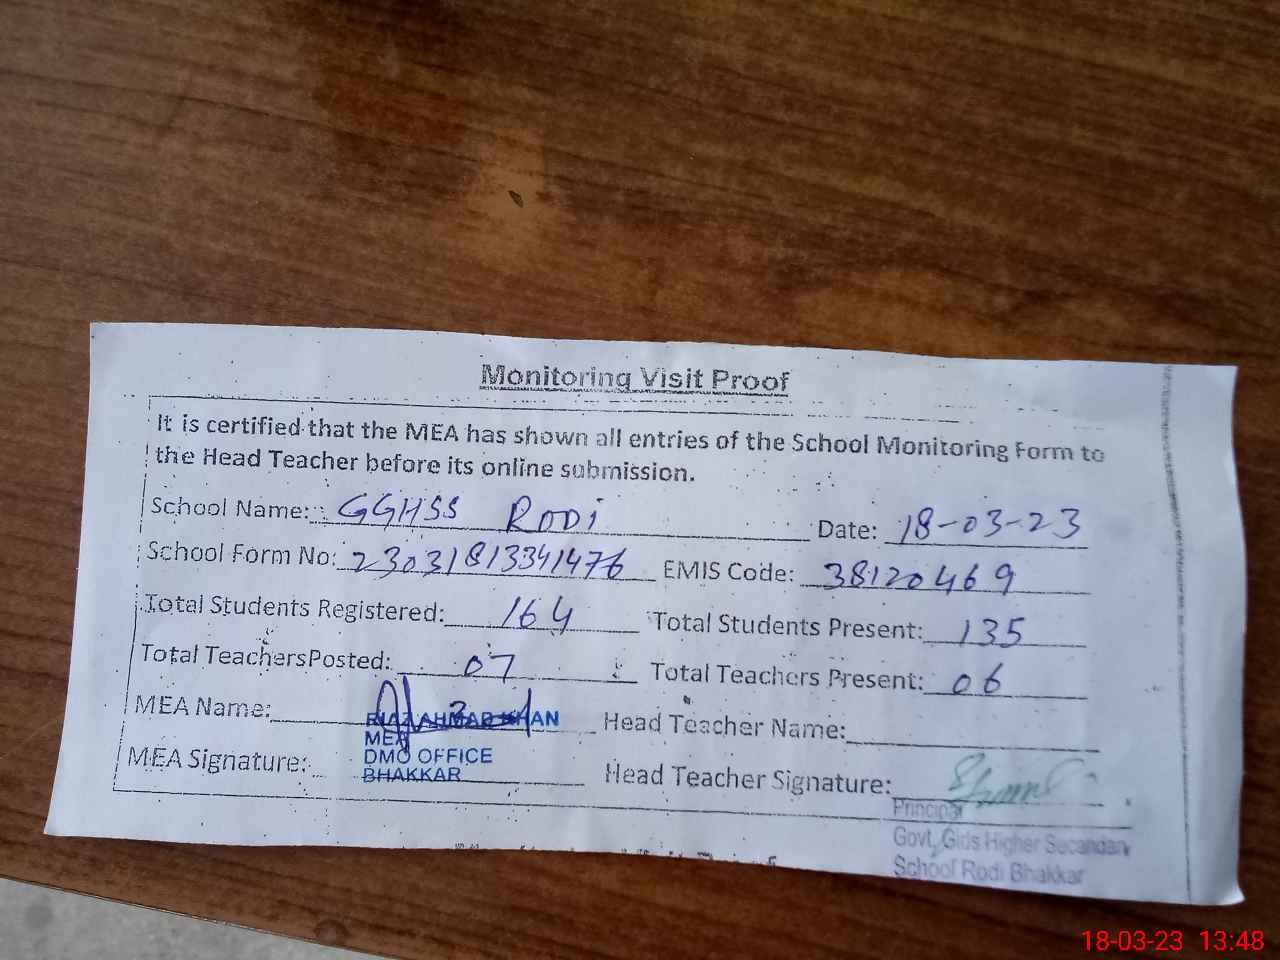 Monitoring Visit Proof
It is certified that the MEA has shown all entries of the School Monitoring Form to
the Head Teacher before its online submission.
School Name: GGHSS RODi Date: 18-03-23
School Form No: 23031813341476 EMIS Code: 38120469
Total Students Registered: 164 Total Students Present: 135
Total TeachersPosted: 07 Total Teachers Present: 06
MEA Name: RIAZ AHMAD KHAN Head Teacher Name:
MEA
DMO OFFICE
MEA Signature: BHAKKAR Head Teacher Signature:
Principal
Govt, Girls Higher Secandary
School Rodi Bhakkar
18-03-23 13:48